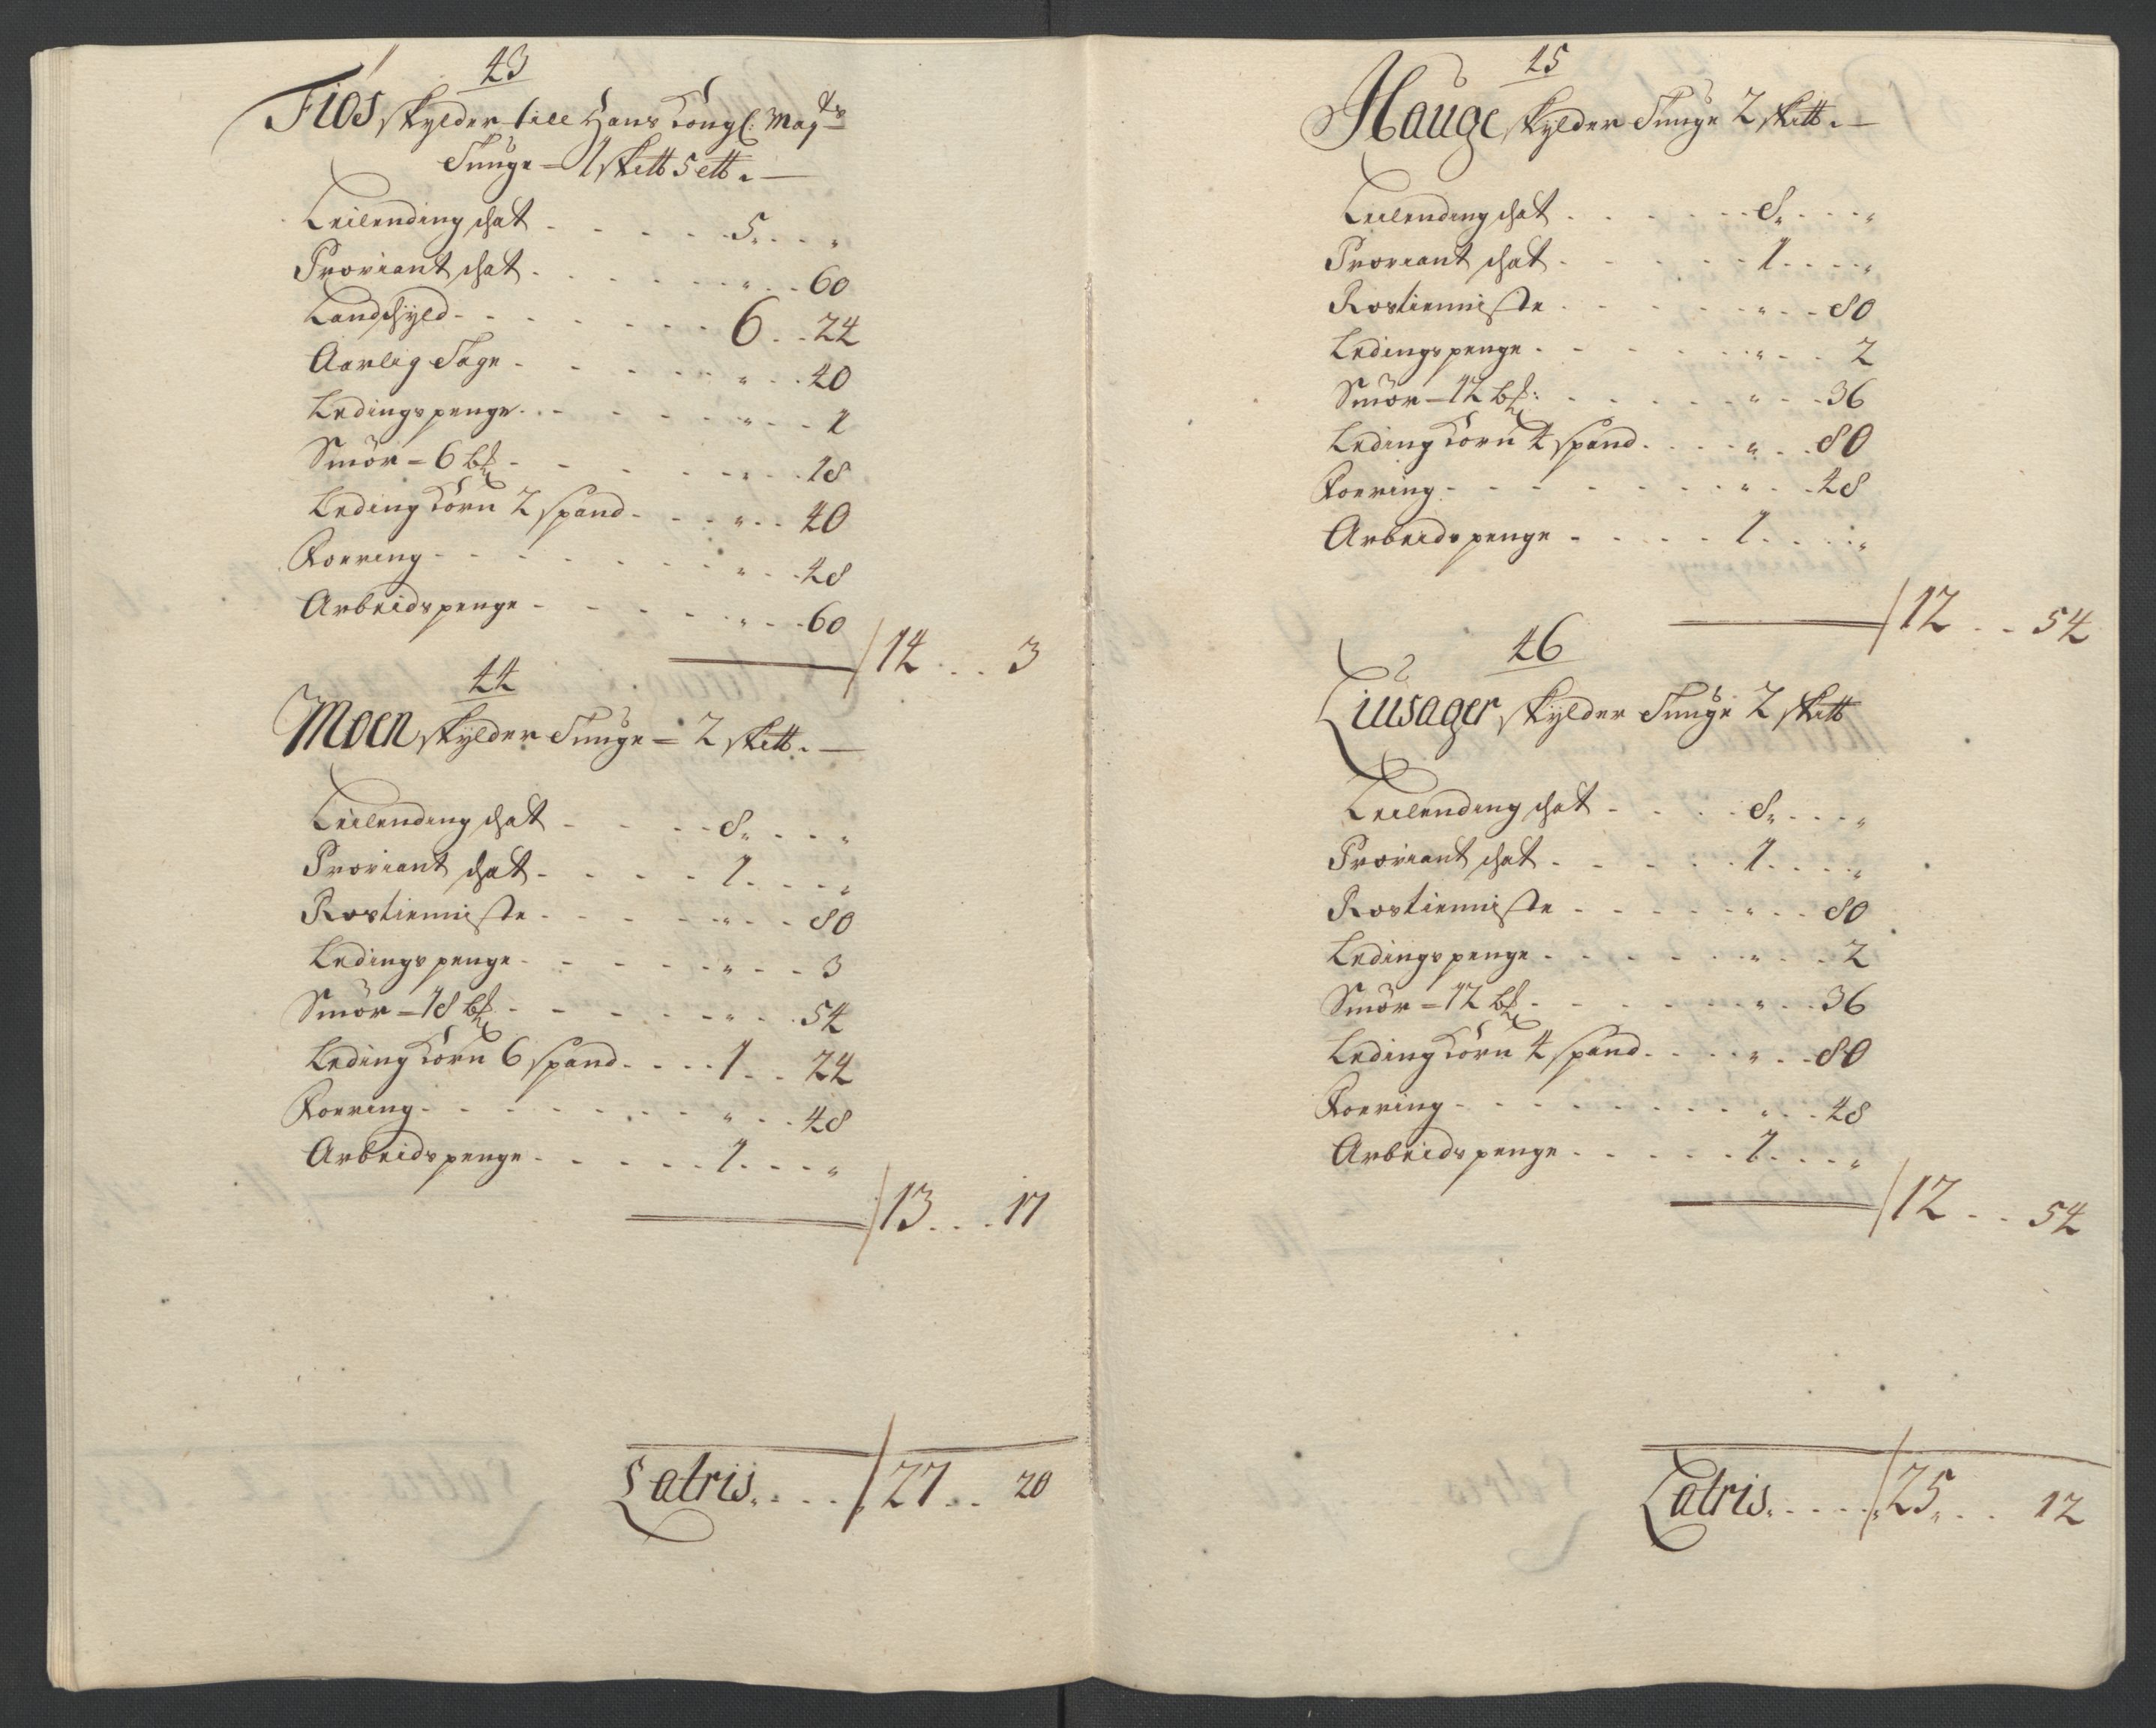 43
Fiøs skylder till Hans Kongl: Mayts
Smør = 1 skett 5 ett. —
Leilending schat . . . . . 5. . . . "
Proviant schat . . . . . " . . 60
Landschyld . . . . . 6 . . 24
Aarlig Tage . . . . . " . . 40
Ledingspenge . . . . . " . . 1
Smör = 6 bℓ . . . . . " . . 18
Leding Korn 2 spand . . . . " . . 40
Foering . . . . . " . . 48
Arbeidspenge . . . . . " . . 60
14 . . . 3
44
Moen skylder = 2 skett. —
Leilending schat . . . . 8. . . . "
Proviant schat . . . . 1. . . . "
Rostienniste . . . . . " . . 80
Ledingspenge . . . . . " . . 3
Smör = 18 bℓ . . . . . " . . 54
Leding Korn 6 spand . . . . 1 . . 24
Foering . . . . . " . . 48
Arbeidspenge . . . . . 1. . . . "
13 . . . 17
Latris. . . . . 27 . . 20
45
Hauge skylder 2 skett. —
Leilending schat . . . . . 8. . . . "
Proviant schat . . . . . 1. . . . "
Rostienniste . . . . . " . . 80
Ledingspenge . . . . . " . . 2
Smör = 12 bℓ: . . . . . " . . 36
Leding Korn 4 spand . . . . " . . 80
Foering . . . . . " . . 48
Arbeidspenge . . . . . 1. . . . "
12 . . 54
46
Liusager skylder 2 skett
Leilending schat . . . . 8. . . . "
Proviant schat . . . . . 1. . . . "
Rostienniste . . . . . " . . 80
Ledingspenge . . . . . " . . 2
Smör = 12 bℓ . . . . . " . . 36
Leding Korn 4 spand . . . . " . . 80
Foering . . . . . " . . 48
Arbeidspenge . . . . . 1. . . . "
12 . . 54
Latris. . . . . 25. . . 12